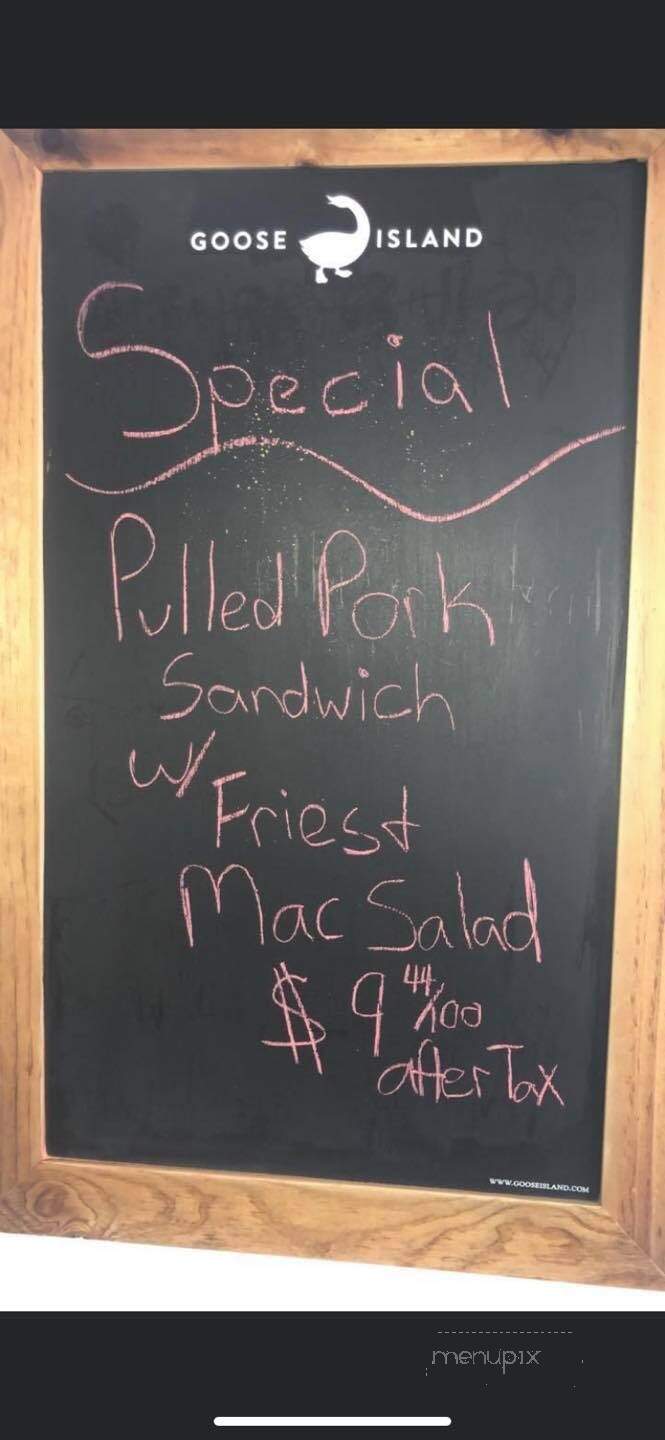 GOOSE ISLAND
Special
Pulled Pork
Sandwich
w/
Fries +
Mac Salad
$ 9 44/100
after Tax
WWW.GOOSEISLAND.COM
menupix